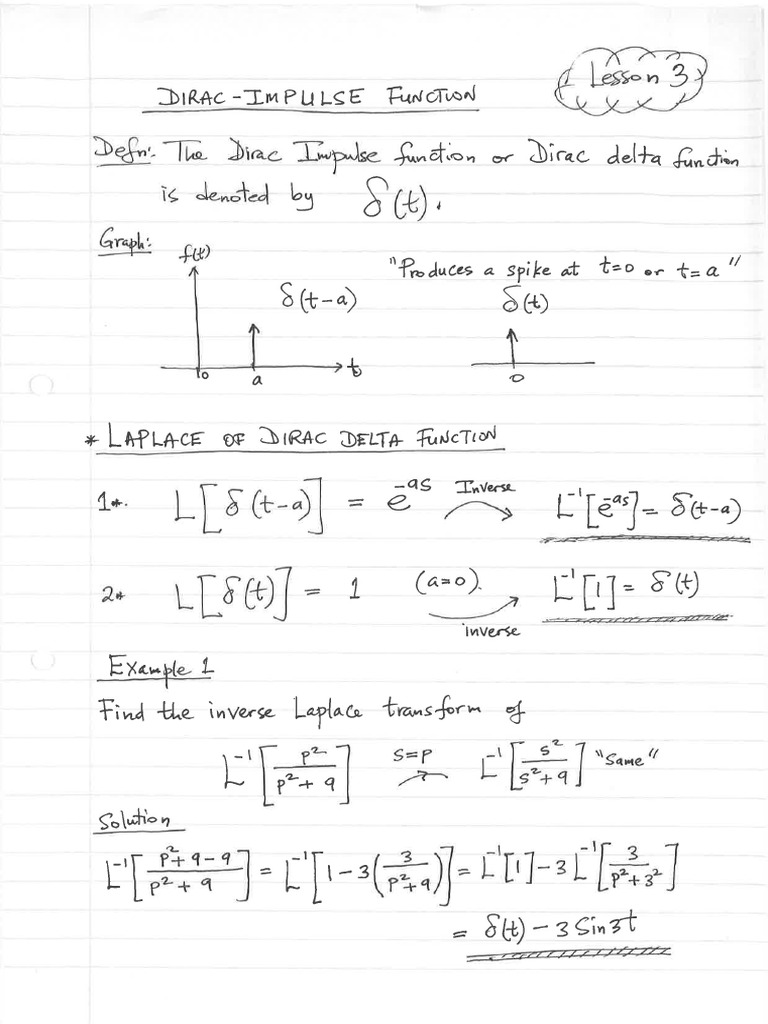 Lesson 3
DIRAC-IMPULSE FUNCTION
Defn: The Dirac Impulse function or Dirac delta function
is denoted by δ(t).
Graph:
f(t)
"Produces a spike at t=0 or t=a"
δ(t-a) δ(t)
0 a t 0
* LAPLACE OF DIRAC DELTA FUNCTION
1*. L[δ(t-a)] = e^{-as} Inverse L^{-1}[e^{-as}] = δ(t-a)
2* L[δ(t)] = 1 (a=0). inverse L^{-1}[1] = δ(t)
Example 1
Find the inverse Laplace transform of
L^{-1}[p^2/(p^2+9)] s=p L^{-1}[s^2/(s^2+9)] "Same"
Solution
L^{-1}[(p^2+9-9)/(p^2+9)] = L^{-1}[1-3(3/(p^2+9))] = L^{-1}[1]-3L^{-1}[3/(p^2+3^2)]
= δ(t) - 3 Sin3t